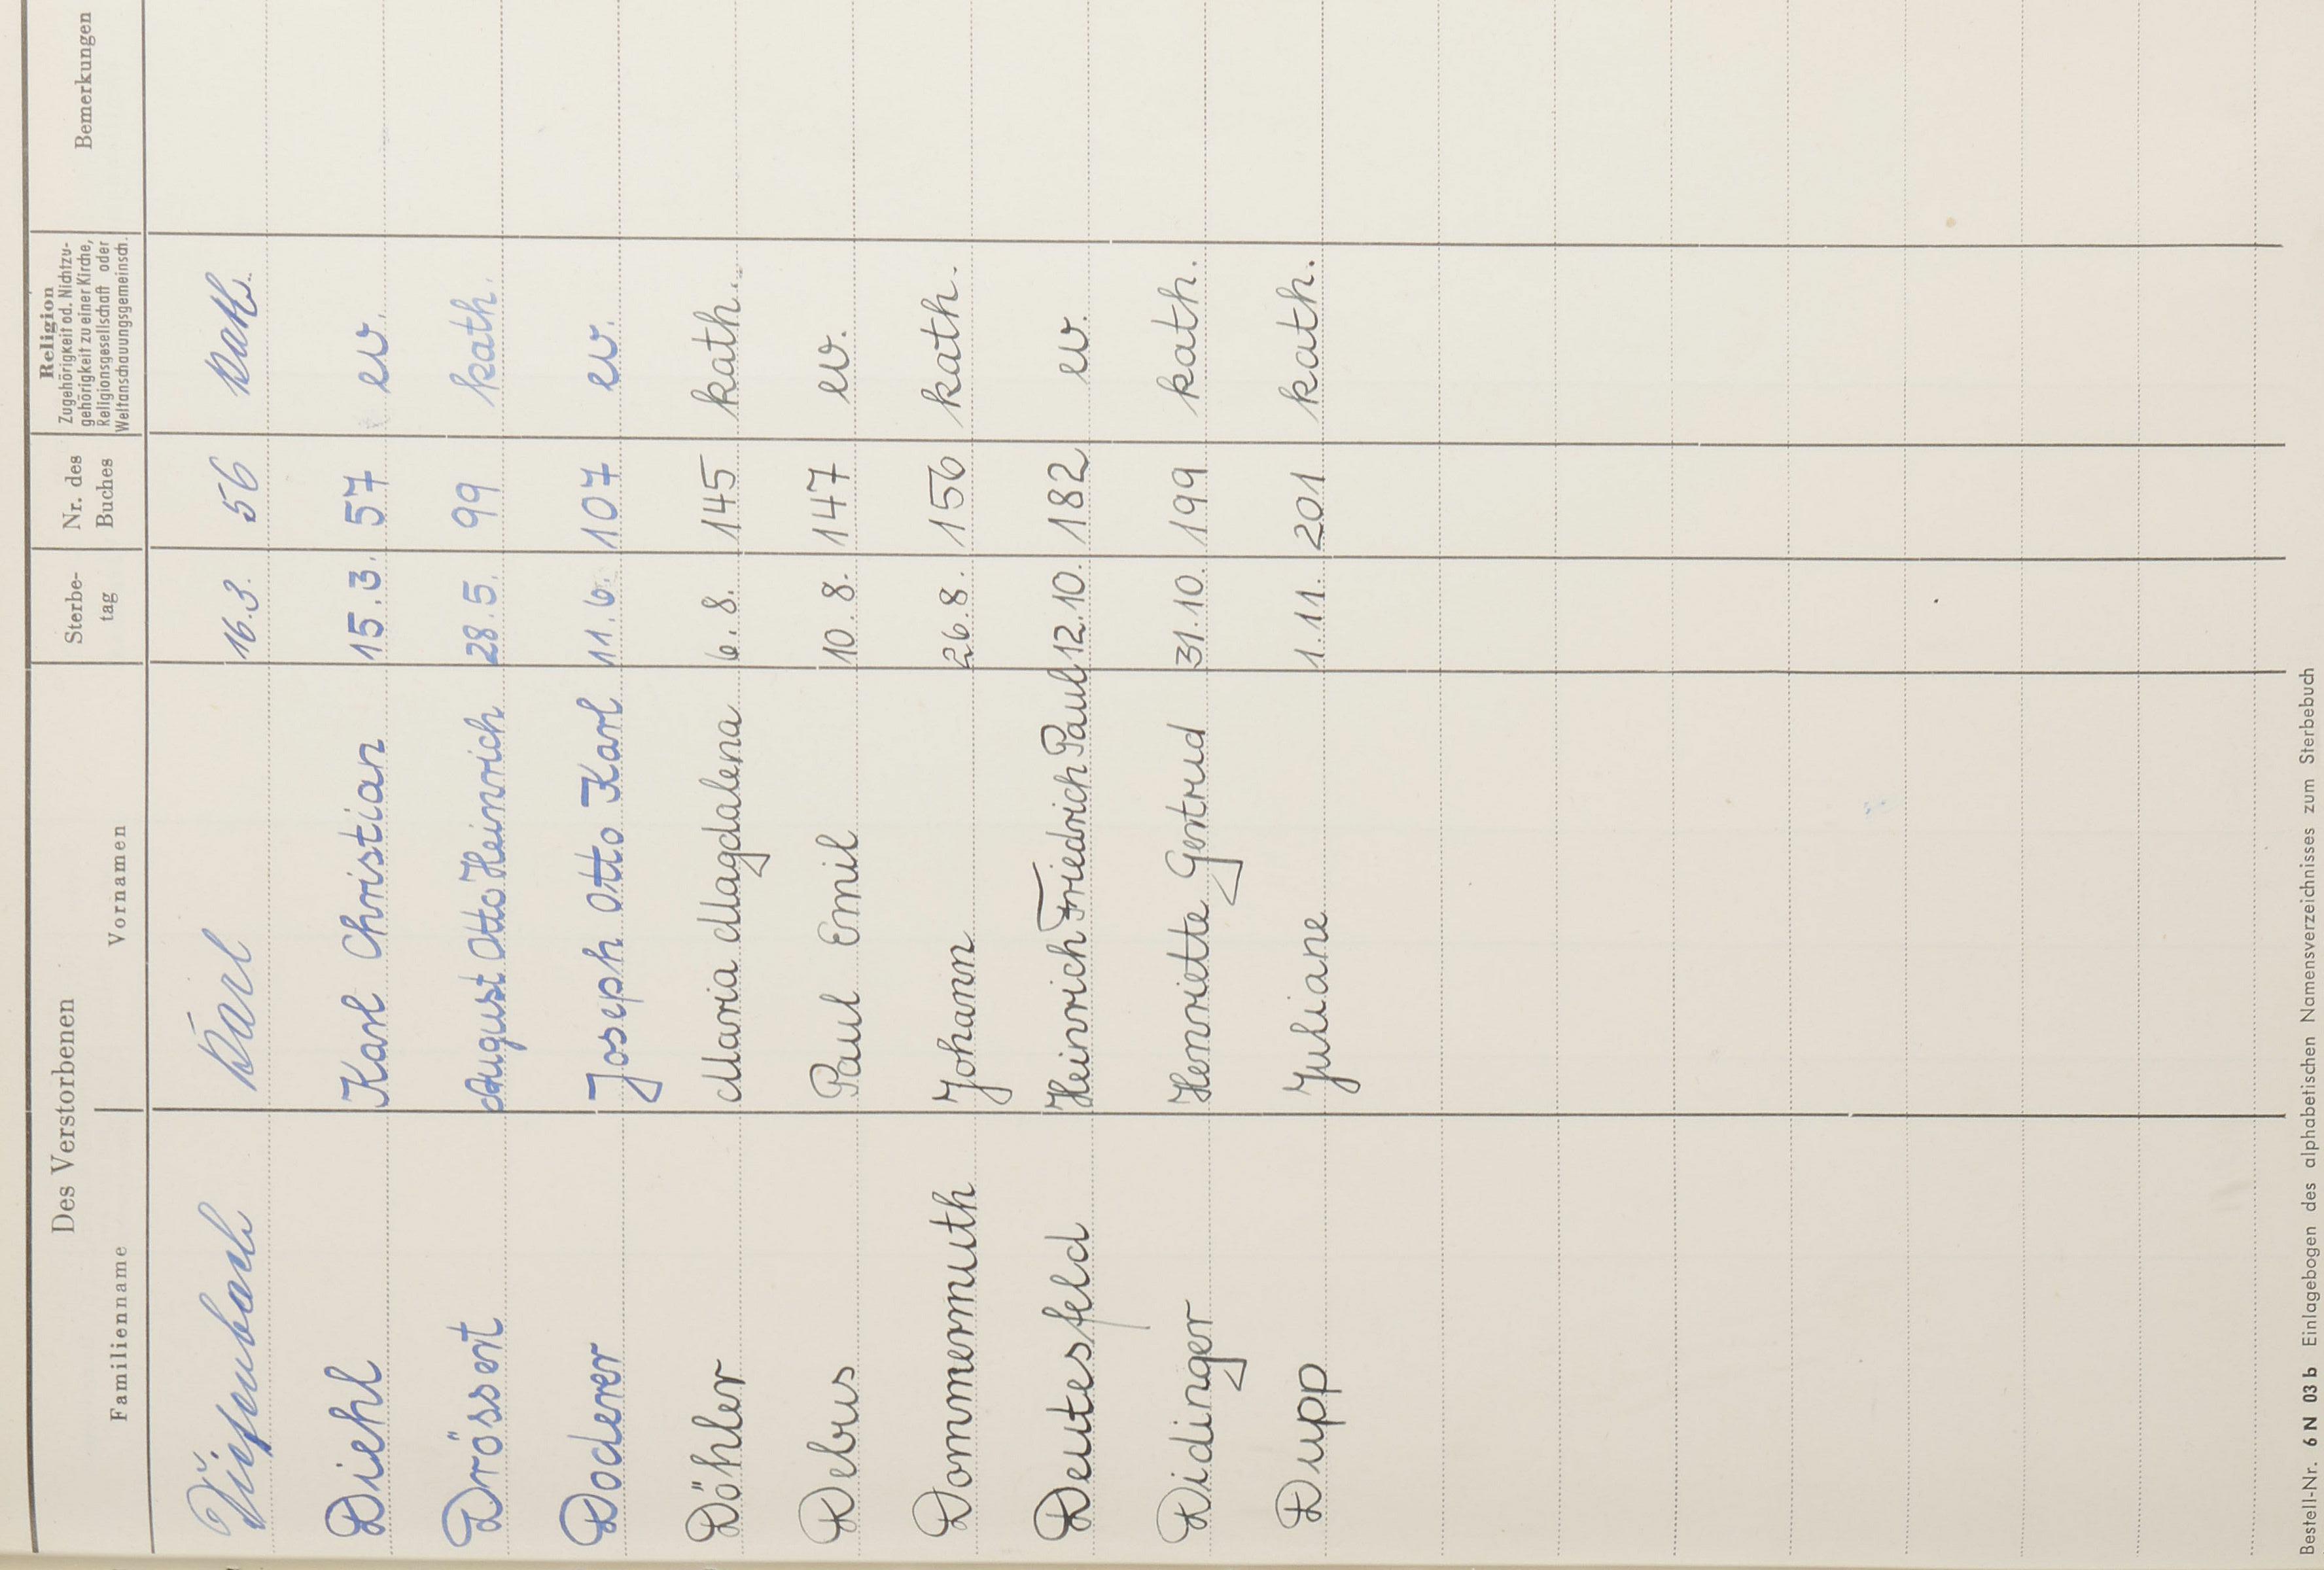 Des Verstorbenen
Familienname Vornamen Sterbe-tag Nr. des Buches Religion Zugehörigkeit od. Nichtzu-gehörigkeit zu einer Kirche, Religionsgesellschaft oder Weltanschauungsgemeinsch. Bemerkungen
Diefenbach Karl 16.3. 56 kath.
Diehl Karl Christian 15.3. 57 ev.
Drössert August Otto Heinrich 28.5. 99 kath.
Doderer Joseph Otto Karl 11.6. 107 ev.
Döhler Maria Magdalena 6.8. 145 kath.
Debus Paul Emil 10.8. 147 ev.
Dommermuth Johann 26.8. 156 kath.
Deutesfeld Heinrich Friedrich Paul 12.10. 182 ev.
Didinger Henriette Gertrud 31.10. 199 kath.
Dupp Juliane 1.11. 201 kath.
Bestell-Nr. 6 N 03 b Einlagebogen des alphabetischen Namensverzeichnisses zum Sterbebuch